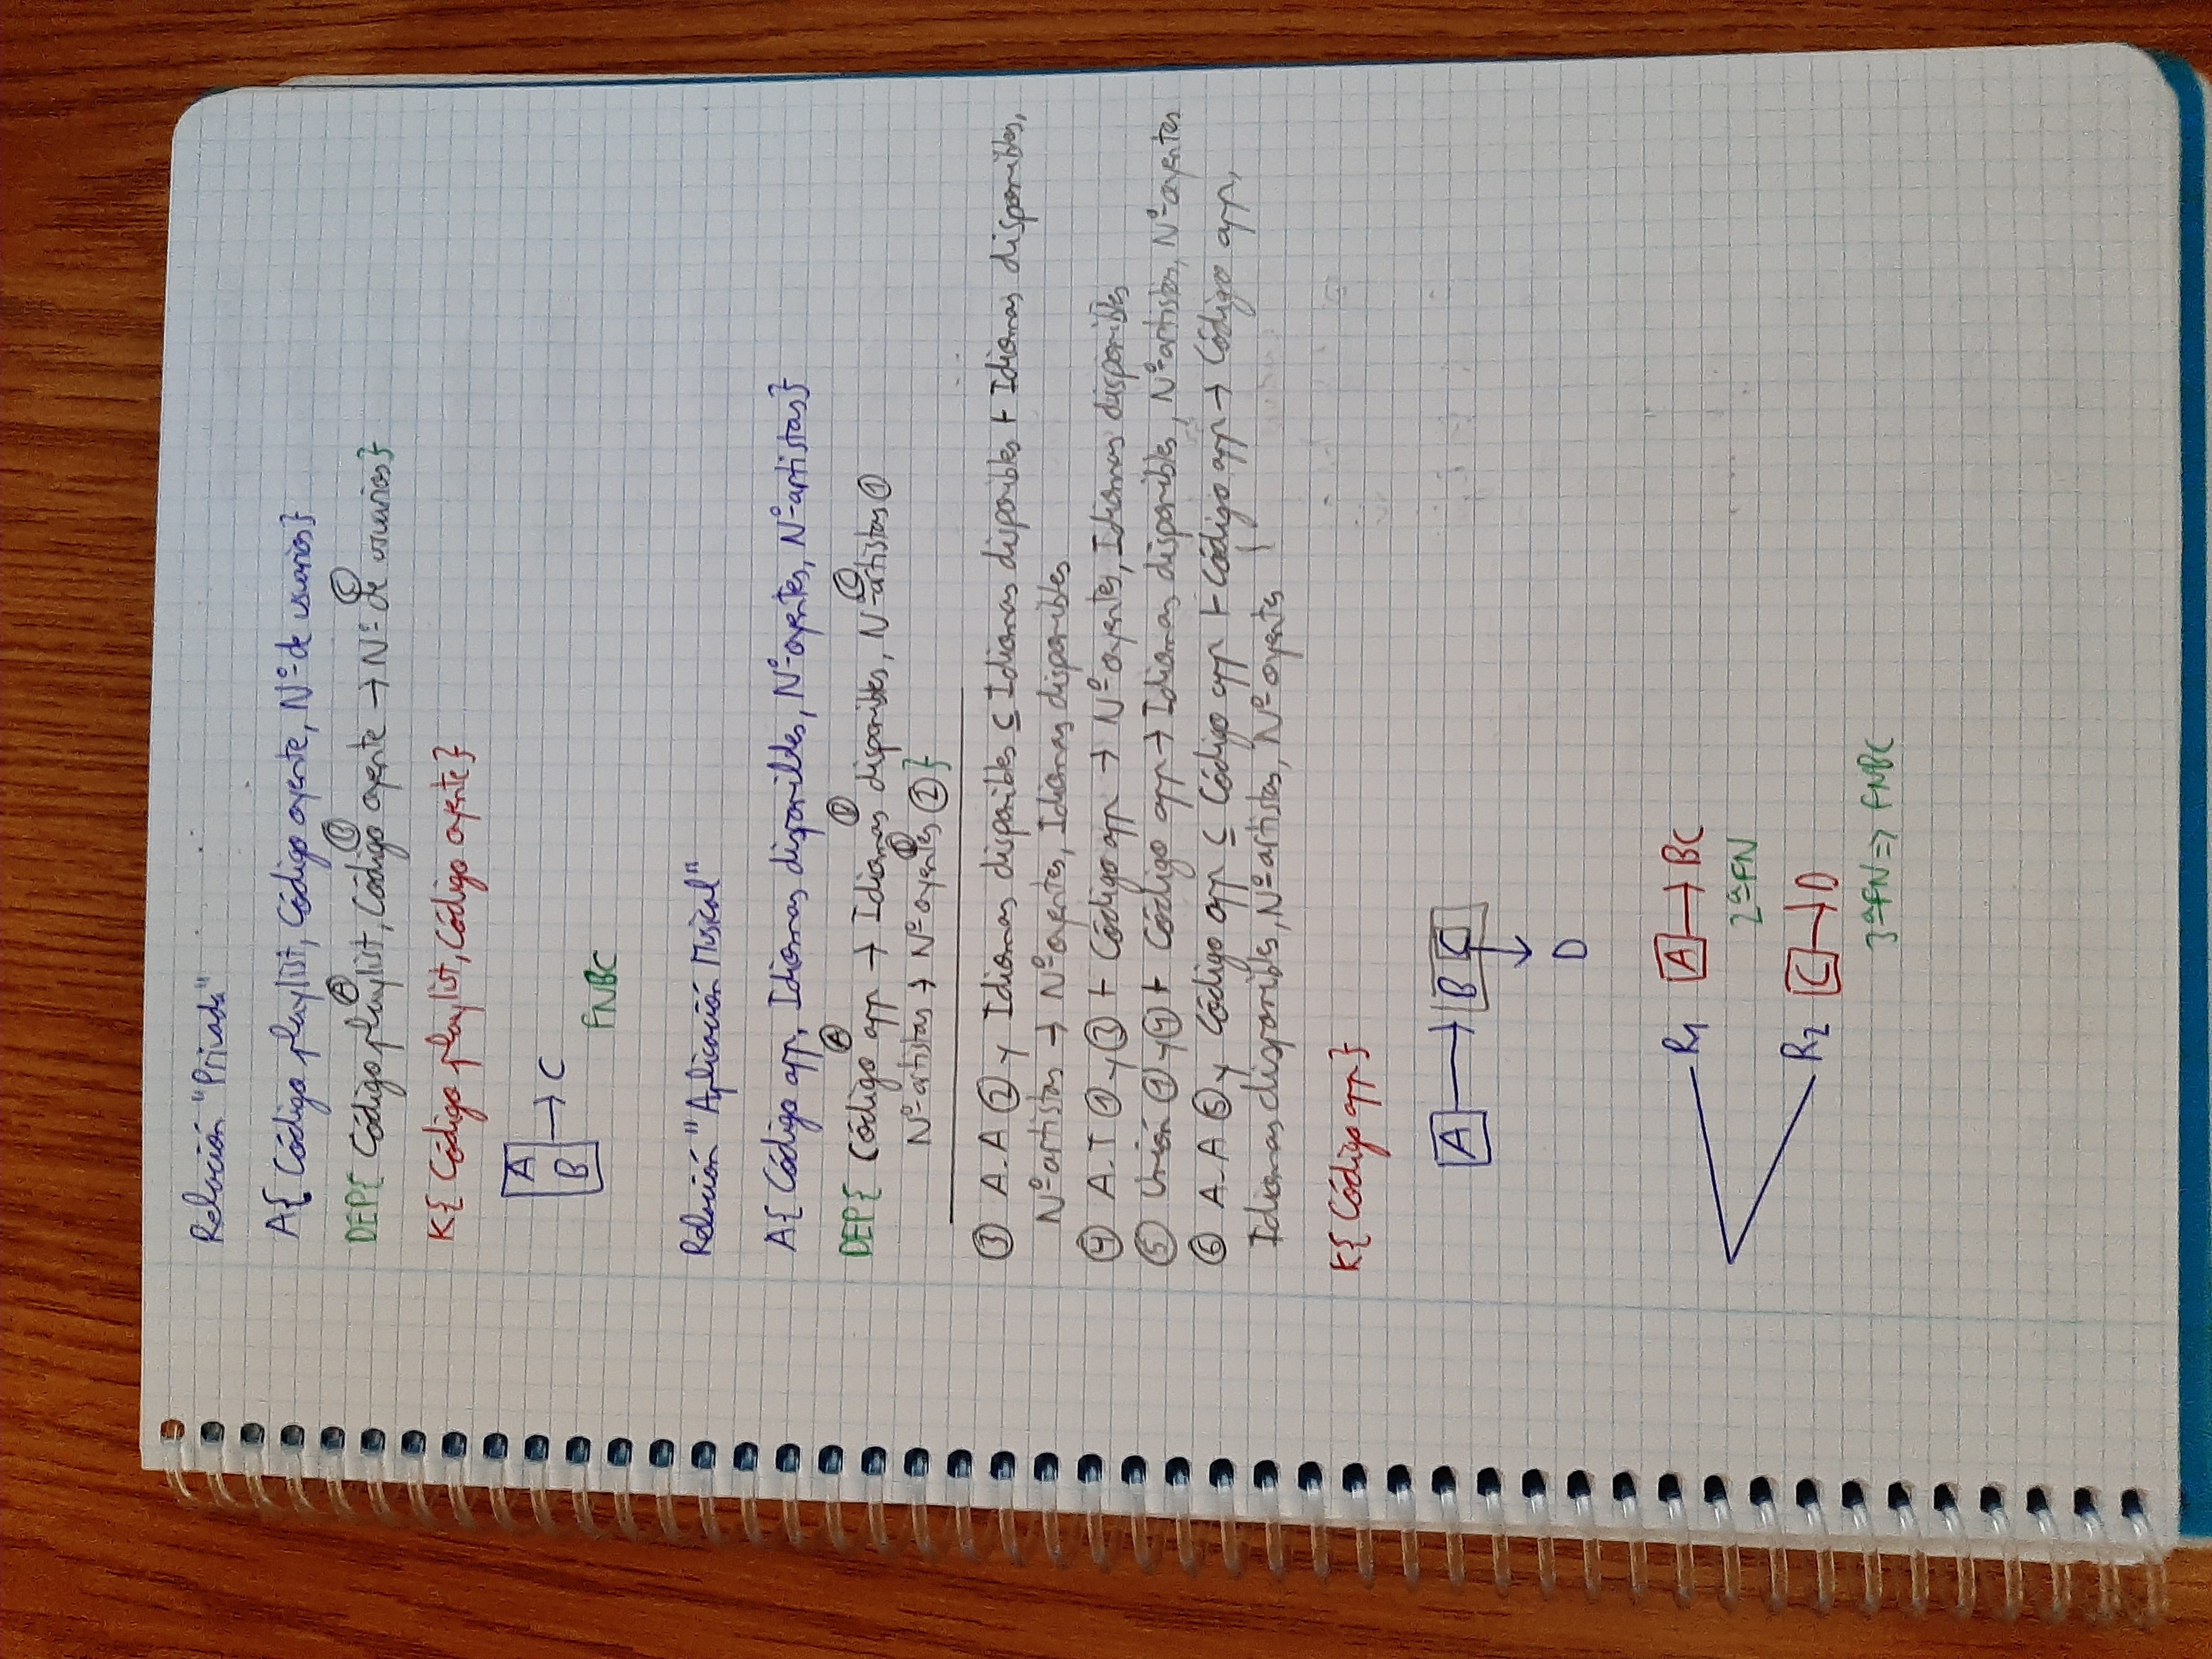 Relación "Privada"
A{ Código playlist, Código oyente, Nº de usuarios}
A B C
DEP{ Código playlist, Código oyente → Nº de usuarios}
K{ Código playlist, Código oyente}
A
B → C
FNBC
Relación "Aplicación Musical"
A{ Código app, Idiomas disponibles, Nº oyentes, Nº artistas}
A B C
DEP{ Código app → Idiomas disponibles, Nº artistas ①
D
Nº artistas → Nº oyentes ②}
③ A.A ② y Idiomas disponibles ⊆ Idiomas disponibles ⊢ Idiomas disponibles,
Nº artistas → Nº oyentes, Idiomas disponibles
④ A.T ① y ③ ⊢ Código app → Nº oyentes, Idiomas disponibles
⑤ Unión ① y ④ ⊢ Código app → Idiomas disponibles, Nº artistas, Nº oyentes
⑥ A.A ⑤ y Código app ⊆ Código app ⊢ Código app → Código app,
Idiomas disponibles, Nº artistas, Nº oyentes
K{ Código app}
A → B C
↓
D
R1 A → BC
2ª FN
R2 C → D
3ª FN ⇒ FNBC